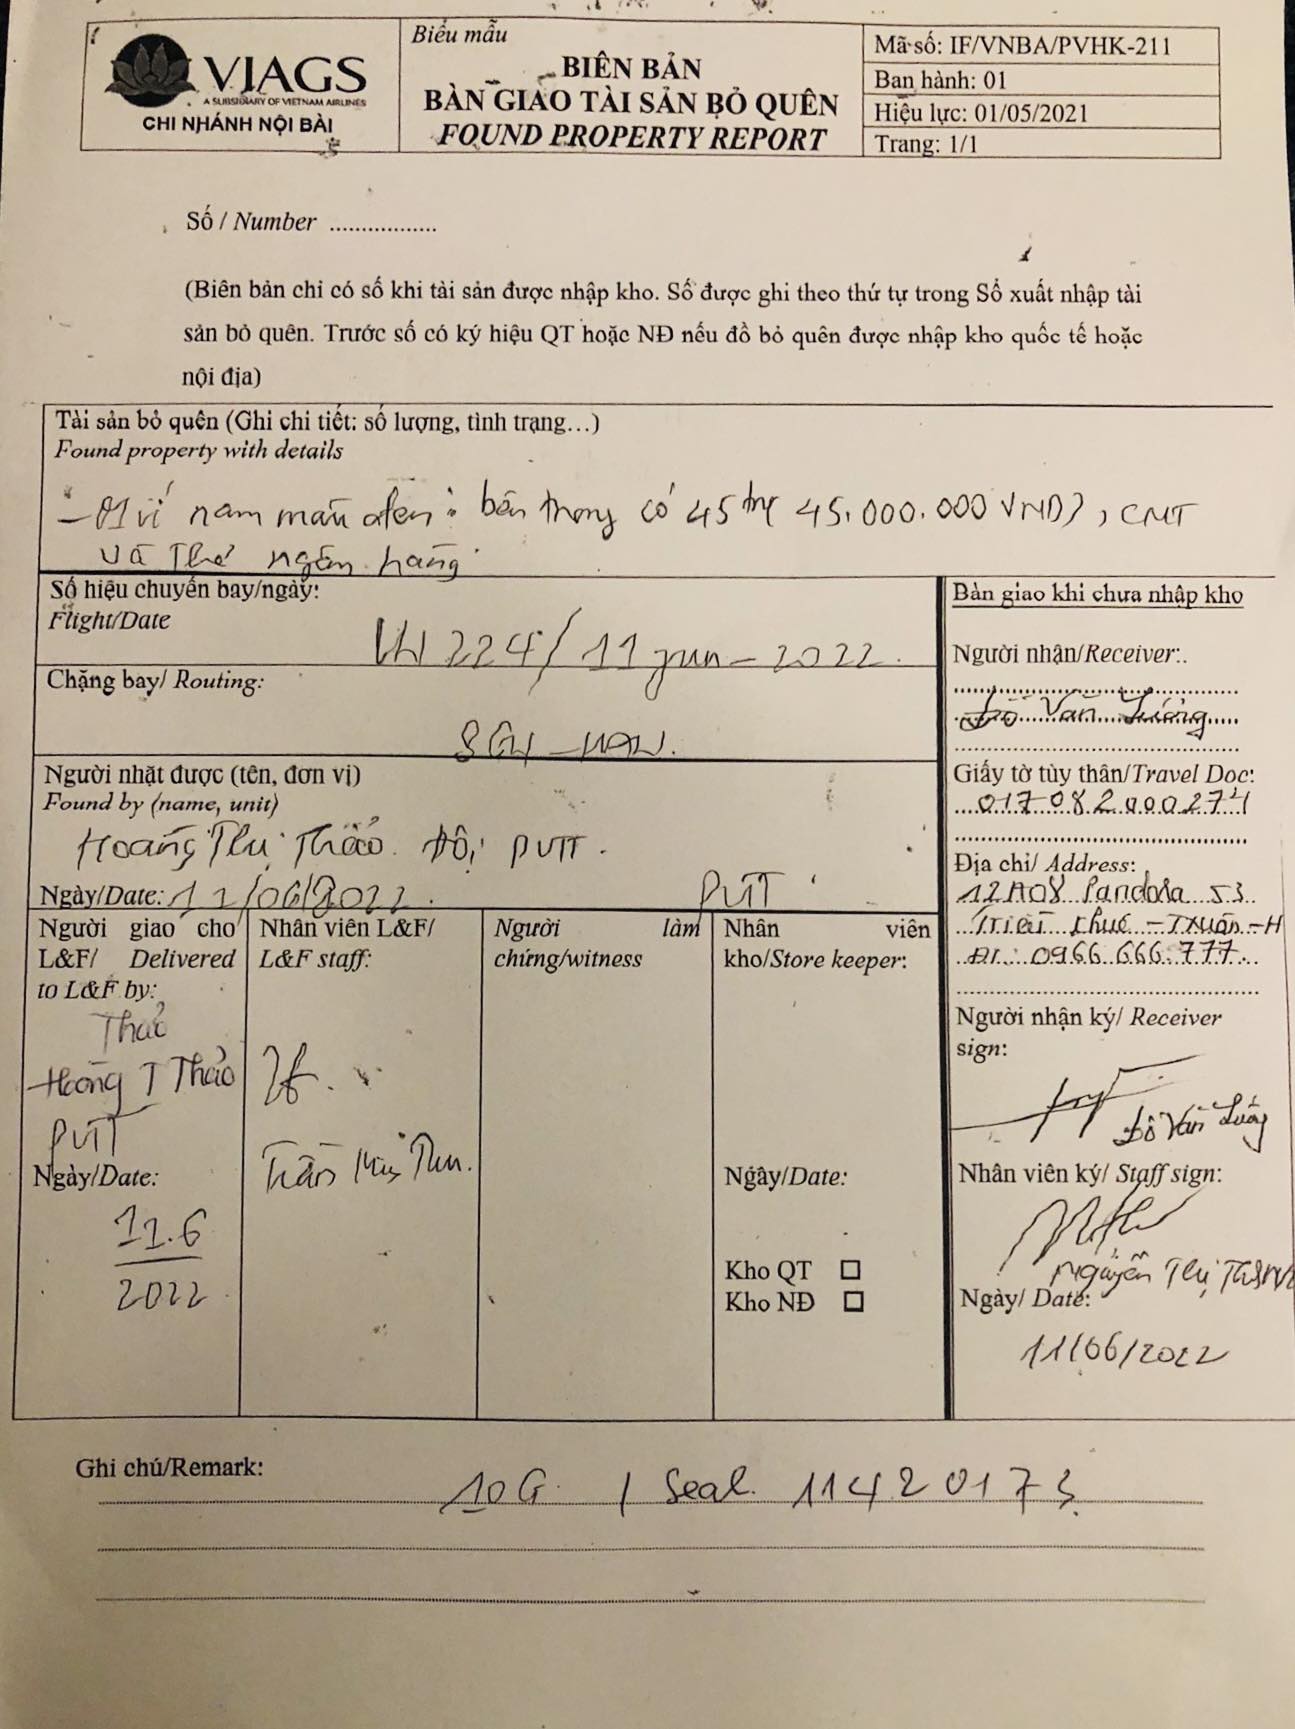 VIAGS
A SUBSIDIARY OF VIETNAM AIRLINES
CHI NHÁNH NỘI BÀI
Biểu mẫu
BIÊN BẢN
BÀN GIAO TÀI SẢN BỎ QUÊN
FOUND PROPERTY REPORT
Mã số: IF/VNBA/PVHK-211
Ban hành: 01
Hiệu lực: 01/05/2021
Trang: 1/1
Số / Number ..................
(Biên bản chỉ có số khi tài sản được nhập kho. Số được ghi theo thứ tự trong Sổ xuất nhập tài
sản bỏ quên. Trước số có ký hiệu QT hoặc NĐ nếu đồ bỏ quên được nhập kho quốc tế hoặc
nội địa)
Tài sản bỏ quên (Ghi chi tiết: số lượng, tình trạng…)
Found property with details
- 01 ví nam màu đen: bên trong có 45 trị 45.000.000 VND), CMT
và thẻ ngân hàng
Số hiệu chuyến bay/ngày:
Flight/Date
VN 224/ 11 jun - 2022.
Chặng bay/ Routing:
SGN - HAN.
Người nhặt được (tên, đơn vị)
Found by (name, unit)
Hoàng Thị Thảo. Đội PVTT.
Ngày/Date: 11/06/2022.
Người giao cho
L&F/ Delivered
to L&F by:
Thảo
Hoàng T Thảo
Ngày/Date:
11.6
2022
Nhân viên L&F/
L&F staff:
Trần
Người làm
chứng/witness
Nhân viên
kho/Store keeper:
Ngày/Date:
Kho QT ☐
Kho NĐ ☐
Bàn giao khi chưa nhập kho
Người nhận/Receiver:.
Đỗ Văn Lường
Giấy tờ tùy thân/Travel Doc:
017082000274
Địa chỉ/ Address:
12A08 Pandora 53
Triều Khúc - TXuân - H
ĐT: 0966 666 777
Người nhận ký/ Receiver
sign:
Đỗ Văn Lường
Nhân viên ký/ Staff sign:
Nguyễn Thị
Ngày/ Date:
11/06/2022
Ghi chú/Remark:
10G / Seal. 11420173